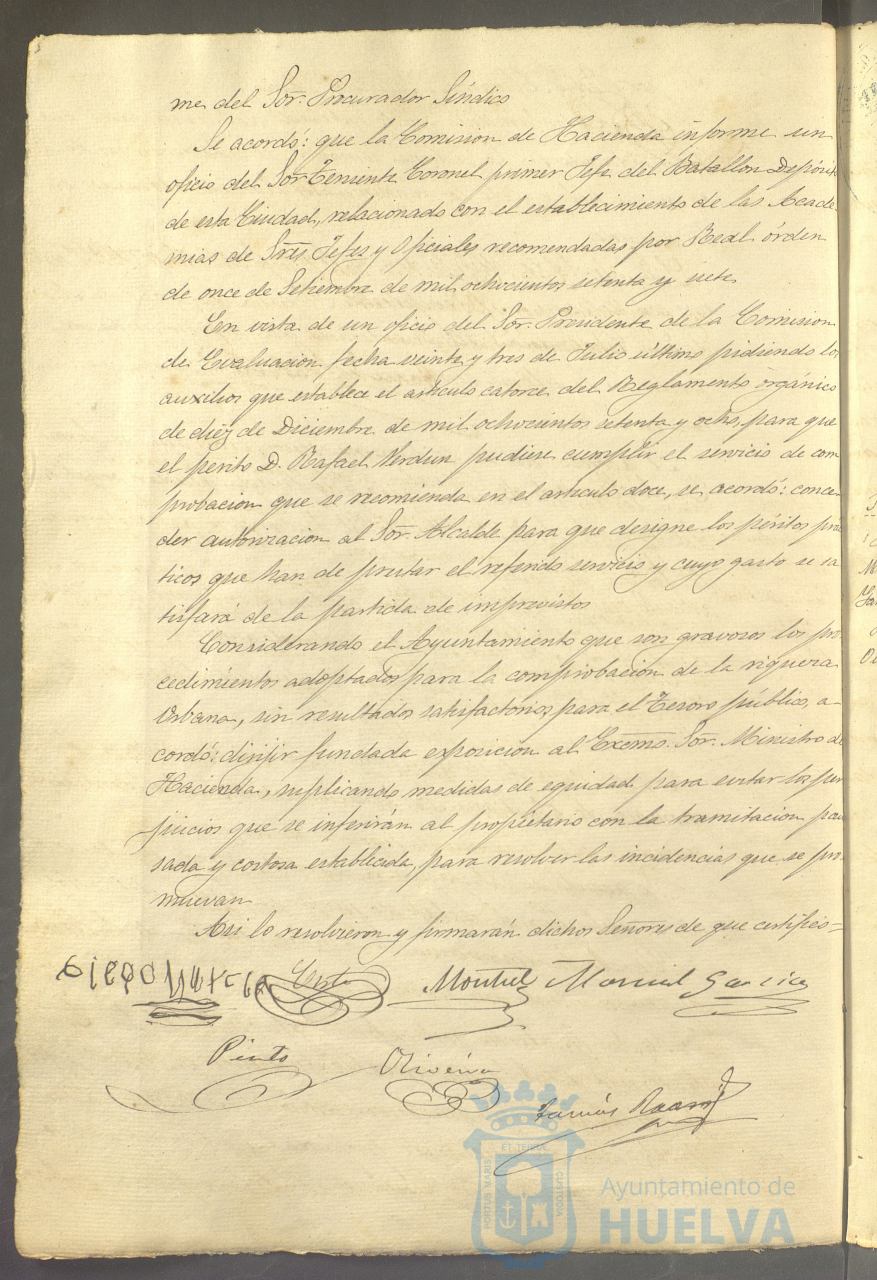 me del Sor. Procurador Sindico
Se acordó: que la Comision de Hacienda informe un
oficio del Sor Teniente Coronel primer Jefe del Batallon Depósit
de esta Ciudad, relacionado con el establecimiento de las Acade-
mias de Sres Jefes y Oficiales recomendadas por Real órden
de once de Setiembre de mil ochocientos setenta y siete
En vista de un oficio del Sor. Presidente de la Comision
de Evaluacion fecha veinte y tres de Julio último pidiendo los
auxilios que establece el artículo catorce del Reglamento orgánico
de diez de Diciembre de mil ochocientos setenta y ocho, para que
el perito D. Rafael Verdun pudiese cumplir el servicio de com
probacion que se recomienda en el artículo doce, se acordó: conce-
der autorizacion al Sor. Alcalde para que designe los péritos prac
ticos que han de prestar el referido servicio y cuyo gasto se sa
tisfará de la partida de imprevistos
Considerando el Ayuntamiento que son gravosos los pro-
cedimientos adoptados para la comprobacion de la riqueza
Urbana, sin resultados satisfactorios para el Tesoro público, a-
cordó: dirijir fundada exposicion al Excmo. Sor. Ministro de
Hacienda, suplicando medidas de equidad para evitar los per
juicios que se inferirán al propietario con la tramitacion pau
sada y costosa establecida, para resolver las incidencias que se pro-
muevan
Asi lo resolvieron y firmarán dichos Señores de que certifico=
Montiel Marcial Garcia
Pinto Oliveira
Tomás
ET TERRA
PORTUS MARIS
CUSTODIA
Ayuntamiento de
HUELVA